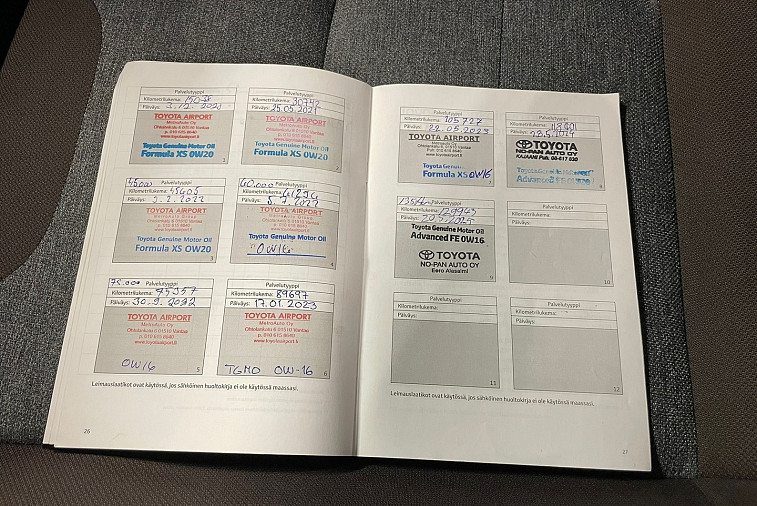 Palvelutyyppi
Kilometrilukema:
Päiväys: 3.12.2020
TOYOTA AIRPORT
MetroAuto Oy
Ohtolankatu 6 01510 Vantaa
p. 010 615 8640
www.toyotaairport.fi
Toyota Genuine Motor Oil
Formula XS 0W20
1
Palvelutyyppi
Kilometrilukema: 30742
Päiväys: 25.05.2021
TOYOTA AIRPORT
MetroAuto Oy
Ohtolankatu 6 01510 Vantaa
p. 010 615 8640
www.toyotaairport.fi
Toyota Genuine Motor Oil
Formula XS 0W20
2
45000 Palvelutyyppi
Kilometrilukema: 45605
Päiväys: 3.2.2022
TOYOTA AIRPORT
Ohtolankatu 6 01510 Vantaa
p. 010 615 8640
www.toyotaairport.fi
Toyota Genuine Motor Oil
Formula XS 0W20
3
60.000 Palvelutyyppi
Kilometrilukema: 61274
Päiväys: 5.7.2022
TOYOTA AIRPORT
Ohtolankatu 6 01510 Vantaa
p. 010 615 8640
www.toyotaairport.fi
Toyota Genuine Motor Oil
0W16
4
75.000 Palvelutyyppi
Kilometrilukema: 75357
Päiväys: 30.9.2022
TOYOTA AIRPORT
MetroAuto Oy
Ohtolankatu 6 01510 Vantaa
p. 010 615 8640
www.toyotaairport.fi
0W16
5
Palvelutyyppi
Kilometrilukema: 89697
Päiväys: 17.01.2023
TOYOTA AIRPORT
MetroAuto Oy
Ohtolankatu 6 01510 Vantaa
p. 010 615 8640
www.toyotaairport.fi
TGMO 0W-16
6
Leimauslaatikot ovat käytössä, jos sähköinen huoltokirja ei ole käytössä maassasi.
26
Palvelutyyppi
Kilometrilukema: 105727
Päiväys: 22.05.2023
TOYOTA AIRPORT
MetroAuto Oy
Ohtolankatu 6 01510 Vantaa
Puh: 010 615 8640
www.toyotaairport.fi
Toyota Genuine
Formula XS 0W16
7
Palvelutyyppi
Kilometrilukema:
Päiväys:
TOYOTA
NO-PAN AUTO OY
KAJAANI Puh. 08-617 830
Advanced FE
8
Palvelutyyppi
Kilometrilukema: 129943
Päiväys:
Toyota Genuine Motor Oil
Advanced FE 0W16
TOYOTA
NO-PAN AUTO OY
Eero Alasalmi
9
Palvelutyyppi
Kilometrilukema:
Päiväys:
10
Palvelutyyppi
Kilometrilukema:
Päiväys:
11
Palvelutyyppi
Kilometrilukema:
Päiväys:
12
Leimauslaatikot ovat käytössä, jos sähköinen huoltokirja ei ole käytössä maassasi.